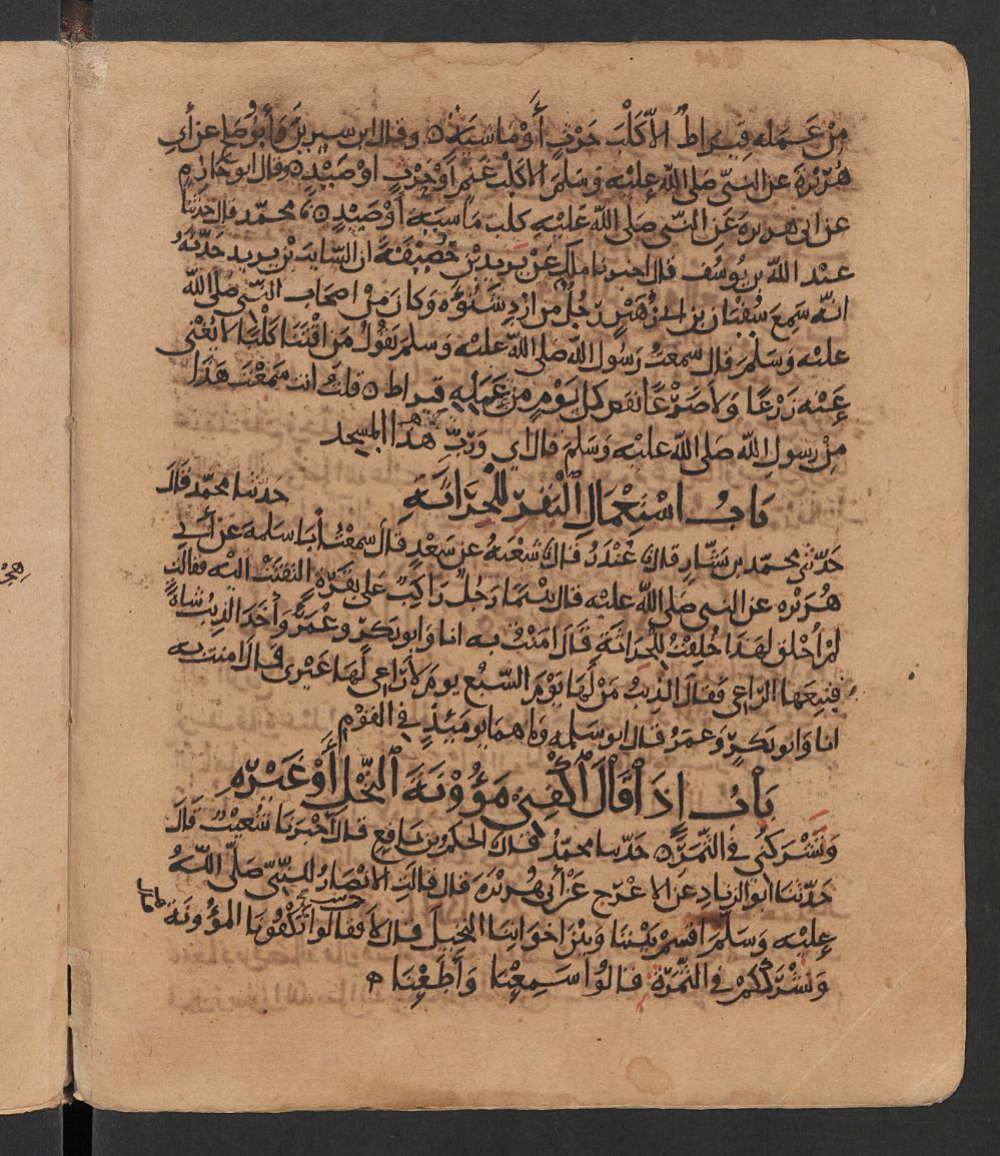 مِنْ عَمَلِهِ قِيرَاطٌ الّا كَلْبَ حَرْثٍ أَوْ مَاشِيَةٍ ۝ وقال ابن سِيرِينَ وَأَبُو صَالح عن أَبي
هُرَيْرَةَ عن النَّبيّ صَلى الله عليْه وَسَلمَ الا كلبَ غَنَمٍ اَوْ حَرْثٍ اوْ صَيْدٍ ۝ وقال ابو حَازِمٍ
عن ابى هريرة عَنِ النَّبى صَلى اللّه عَليْهِ كلب مَاشِيَةٍ أَوْ صَيْدٍ ۝ محمّد قال حَدّثنا
عبْد اللّه بن يُوسُف قال اخبرنا مالك عنْ يَزِيد بْنِ خُصَيْفَةَ ان السَّايبَ بْن يزيد حَدّثهُ
انّه سَمِعَ سُفْيَانَ بن ابى زُهَيْرٍ رَجُلٌ من ازد شَنُوءَةَ وَكانَ مِنْ اصحَاب النَّبىِّ صَلى اللّه
عليْه وَسَلمَ قال سَمعتُ رَسُولَ اللّه صَلى اللّه عليْه وَسلمَ يَقُولُ مَن اقْتَنَا كَلْبًا لا يُغْنى
عَنْه زَرْعًا وَلا ضَرْعًا نقص كل يَوْمٍ مِنْ عَمَلِهِ قيراط ۝ قلتُ انت سَمعْتَ هَذَا
مِنْ رسولِ اللّه صَلى اللّه عليْه وَسَلمَ قال اي وَرَبِّ هَذا المسجد
بَابُ اسْتِعْمَالِ الْبَقَرِ لِلْحِرَاثَةِ حَدثنا محمّد قالَ
حَدّثنى محمّد بن بَشّار قال نا غُنْدَرُ قال نا شُعْبَةُ عن سَعْدٍ قالَ سمعْتُ أَبَا سَلمة عن أَبي
هُرَيْره عن النبى صَلى اللّه عليْه قال بيْنَمَا رَجُلٌ رَاكِبٌ عَلى بقَرَةٍ التفتَتْ اليْه فقالت
لمْ أُخْلق لِهَذَا خُلِقتُ لِلْحِرَاثَةِ قَالَ امَنْتُ به انا وَابو بَكرٍ وعُمَرُ وَأَخَذَ الذِيبُ شَاةً
فتبِعَهَا الرَّاعِى فقالَ الذيبُ مَنْ لَهَا يَوْمَ السّبُع يومَ لا رَاعِى لَهَا غَيْرى قالَ امنت به
انا وَابو بَكرٍ وَعمَرُ قال ابو سَلمه وَمَا هما يومَئذٍ في القوْمِ
بَابُ اِذَا قَالَ اكْفِنِى مَؤُوْنَةَ النَّخْلِ أَوْ غَيْرِه
وَتَشْرَكُنِى في الثَّمَرِ ۝ حَدّثنا محمّدٌ قال نا الحَكم بن نَافِع قال أَخْبَرَنا شُعَيْبٌ قالَ
حَدّثنا ابو الزناد عن الاعْرَج عَنْ أَبي هُرَيْرَةَ قال قالَتِ الانْصَارُ لِلنَّبيّ صَلّى اللّهُ
عليْه وَسَلَّمَ اقسِمْ بَيْنَنَا وَبيْنَ اخوَانِنَا النخيلَ قال لا فقالوا تَكْفُونَا المَؤُونَةَ
وَنَشْرَككُمْ في الثَّمَرَة قالوا سَمِعْنَا وَأَطَعْنَا ه